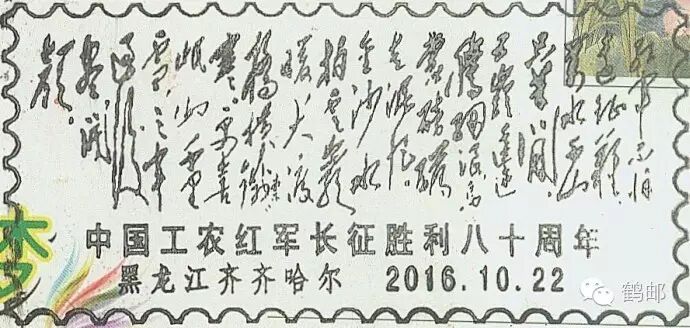 红军不怕
远征难
万水千山
只等闲
五岭逶迤
腾细浪乌
蒙磅礴
走泥丸
金沙水
拍云崖
暖大渡
桥横铁索
寒更喜
岷山千里
雪三军
过后
尽开
颜
中国工农红军长征胜利八十周年
黑龙江齐齐哈尔 2016.10.22
鹤邮